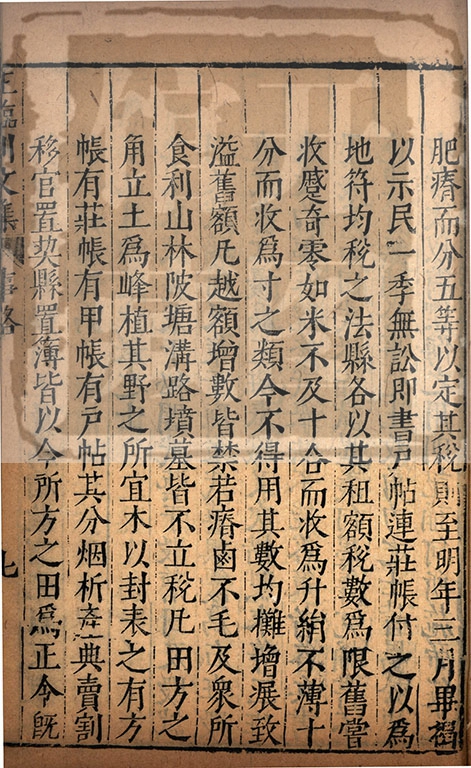 肥瘠而分五等以定其稅則至明年三月畢揭
以示民一季無訟即書戸帖連莊帳付之以為
地符均稅之法縣各以其租額稅數爲限舊嘗
收蹙奇零如米不及十合而收爲升絹不薄十
分而收爲寸之類今不得用其數均攤增展致
溢舊額凡越額增數皆禁若瘠鹵不毛及衆所
食利山林陂塘溝路墳墓皆不立稅凡田方之
角立土爲峰植其野之所宜木以封表之有方
帳有莊帳有甲帳有戸帖其分烟析產典賣割
移官置契縣置簿皆以今所方之田爲正令旣
王臨川文集 事略
七